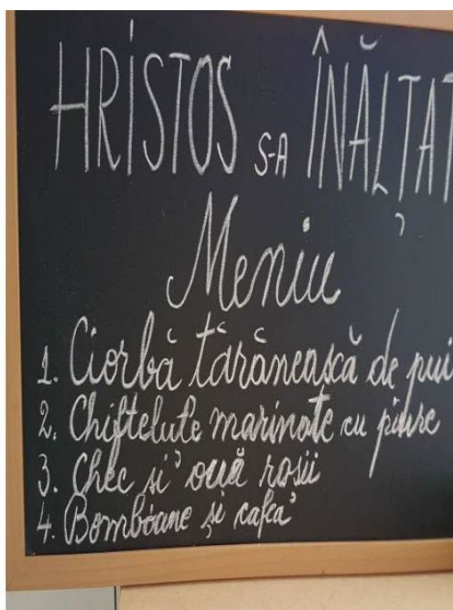 HRISTOS S-A ÎNĂLȚAT
Meniu
1. Ciorbă țărănească de pui
2. Chiftelute marinate cu piure
3. Chec și ouă roșii
4. Bomboane și cafea